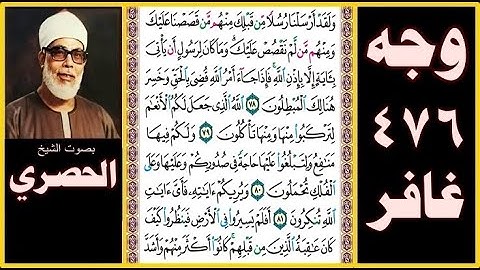 وجه
٤٧٦
غافر
وَلَقَدْ أَرْسَلْنَا رُسُلًا مِّن قَبْلِكَ مِنْهُم مَّن قَصَصْنَا عَلَيْكَ
وَمِنْهُم مَّن لَّمْ نَقْصُصْ عَلَيْكَ وَمَا كَانَ لِرَسُولٍ أَن يَأْتِيَ
بِـَٔايَةٍ إِلَّا بِإِذْنِ ٱللَّهِ فَإِذَا جَآءَ أَمْرُ ٱللَّهِ قُضِيَ بِٱلْحَقِّ وَخَسِرَ
هُنَالِكَ ٱلْمُبْطِلُونَ ٧٨ ٱللَّهُ ٱلَّذِي جَعَلَ لَكُمُ ٱلْأَنْعَٰمَ
لِتَرْكَبُوا۟ مِنْهَا وَمِنْهَا تَأْكُلُونَ ٧٩ وَلَكُمْ فِيهَا
مَنَٰفِعُ وَلِتَبْلُغُوا۟ عَلَيْهَا حَاجَةً فِي صُدُورِكُمْ وَعَلَيْهَا وَعَلَى
ٱلْفُلْكِ تُحْمَلُونَ ٨٠ وَيُرِيكُمْ ءَايَٰتِهِۦ فَأَيَّ ءَايَٰتِ
ٱللَّهِ تُنكِرُونَ ٨١ أَفَلَمْ يَسِيرُوا۟ فِي ٱلْأَرْضِ فَيَنظُرُوا۟ كَيْفَ
كَانَ عَٰقِبَةُ ٱلَّذِينَ مِن قَبْلِهِمْ كَانُوٓا۟ أَكْثَرَ مِنْهُمْ وَأَشَدَّ
بصوت الشيخ
الحصري